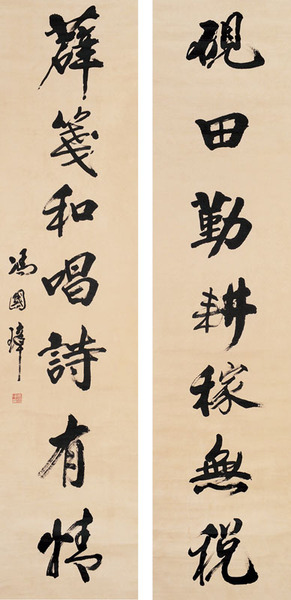 硯田勤耕稼無稅
薜箋和唱詩有情
馮國璋